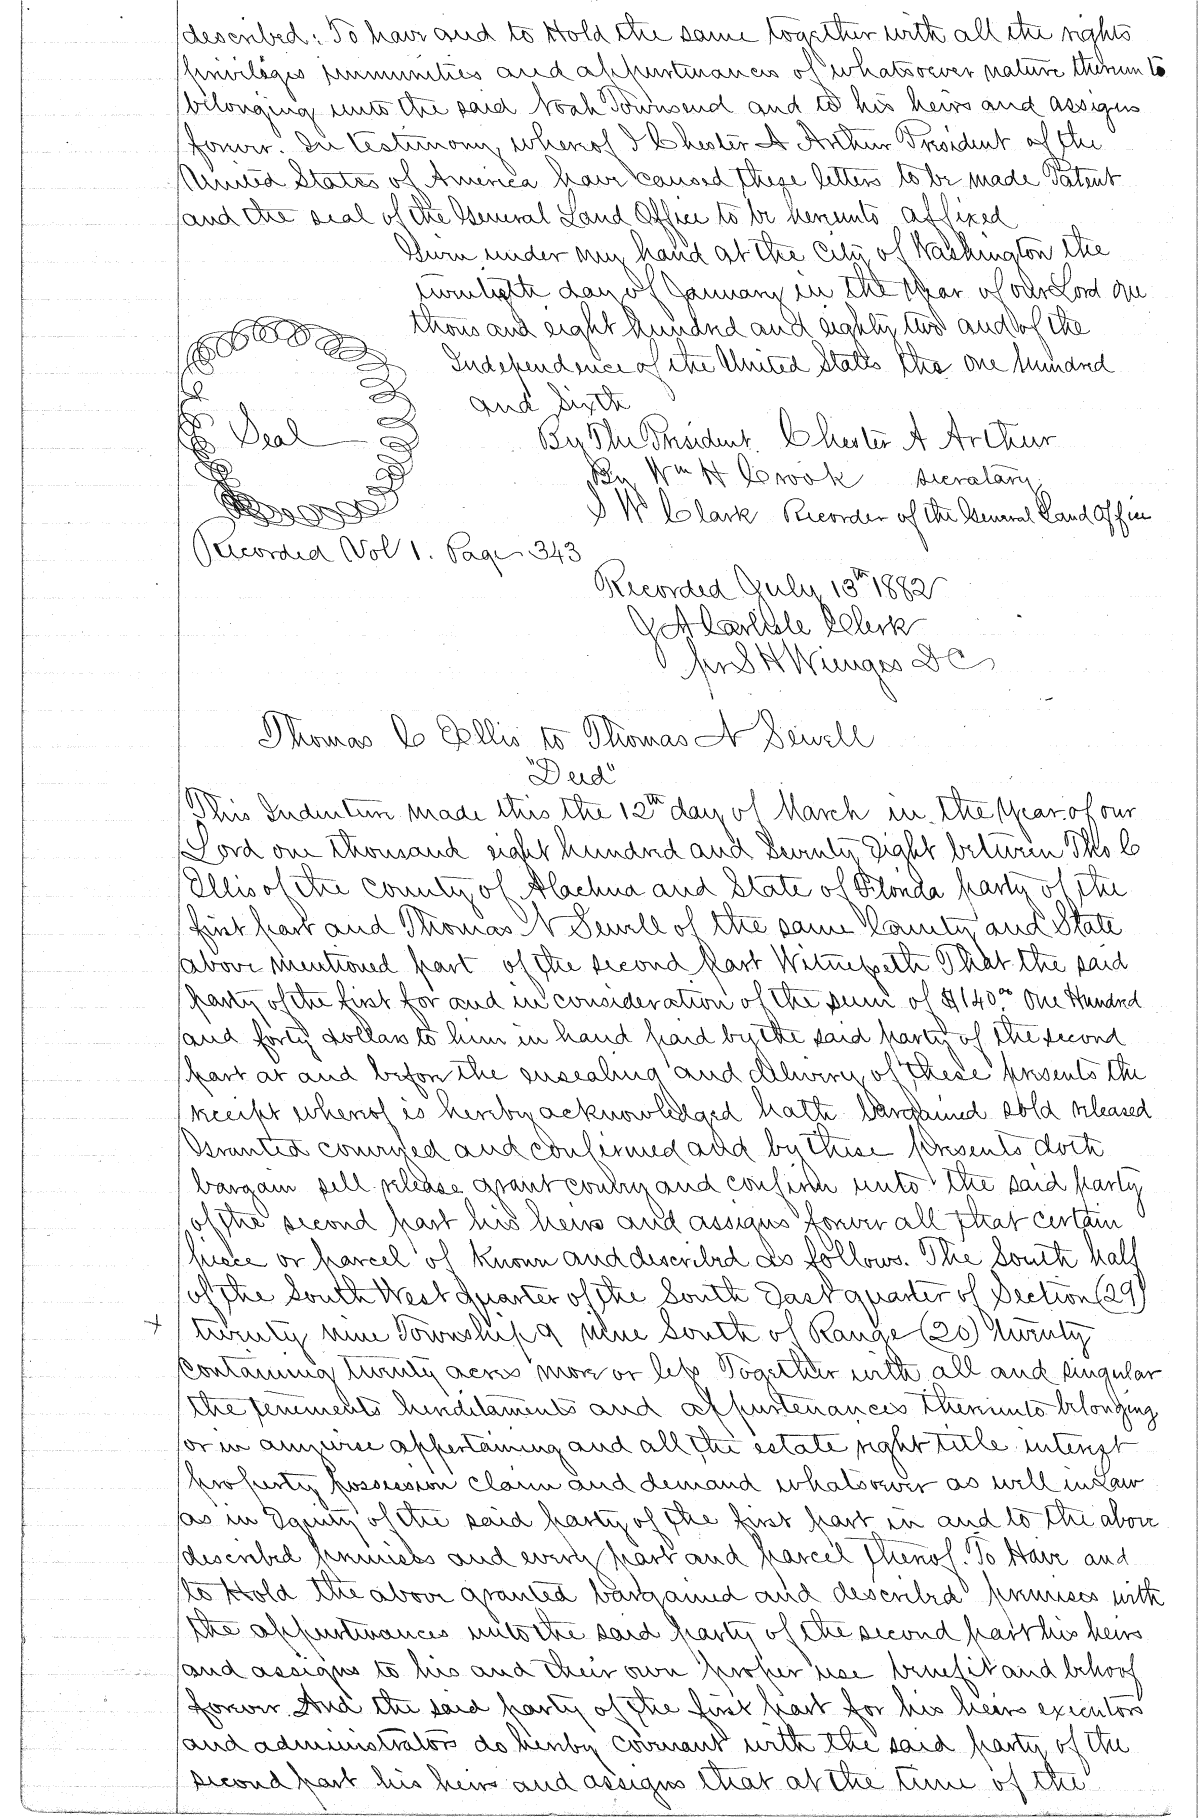 described: To have and to Hold the same together with all the rights
privileges immunities and appurtenances of whatsoever nature thereunto
belonging unto the said Noah Townsend and to his heirs and assigns
forever. In testimony whereof I Chester A Arthur President of the
United States of America have caused these letters to be made Patent
and the seal of the General Land Office to be hereunto affixed
Given under my hand at the City of Washington the
day of January in the Year of our Lord one
thousand eight hundred and eighty two and of the
Independence of the United States the one hundred
and sixth
Seal
By The President Chester A Arthur
By Wm H Crook secratary
S W Clark Recorder of the General Land Office
Recorded Vol 1. Page 343
Recorded July 13th 1882
J A Carlisle Clerk
per S H Wienges DC
Thomas C Ellis to Thomas N Sewell
"Deed"
This Indenture made this the 12th day of March in the Year of our
Lord one thousand eight hundred and Seventy Eight between Tho C
Ellis of the County of Alachua and State of Florida party of the
first part and Thomas N Sewell of the same County and State
above mentioned part of the second part Witnesseth That the said
party of the first for and in consideration of the sum of $140.00 One Hundred
and forty dollars to him in hand paid by the said party of the second
part at and before the ensealing and delivery of these presents the
receipt whereof is hereby acknowledged hath bargained sold released
Granted conveyed and confirmed and by these presents doth
bargain sell release grant convey and confirm unto the said party
of the second part his heirs and assigns forever all that certain
piece or parcel of known and described as follows. The South half
of the South West quarter of the South East quarter of Section (29)
+ twenty nine Township 9 nine South of Range (20) twenty
containing twenty acres more or less Together with all and singular
the tenements hereditaments and appurtenances thereunto belonging
or in anywise appertaining and all the estate right title interest
property possession claim and demand whatsoever as well in Law
as in Equity of the said party of the first part in and to the above
described premises and every part and parcel thereof. To Have and
to Hold the above granted bargained and described premises with
the appurtenances unto the said party of the second part his heirs
and assigns to his and their own proper use benefit and behoof
forever And the said party of the first part for his heirs executors
and administrators do hereby covenant with the said party of the
second part his heirs and assigns that at the time of the